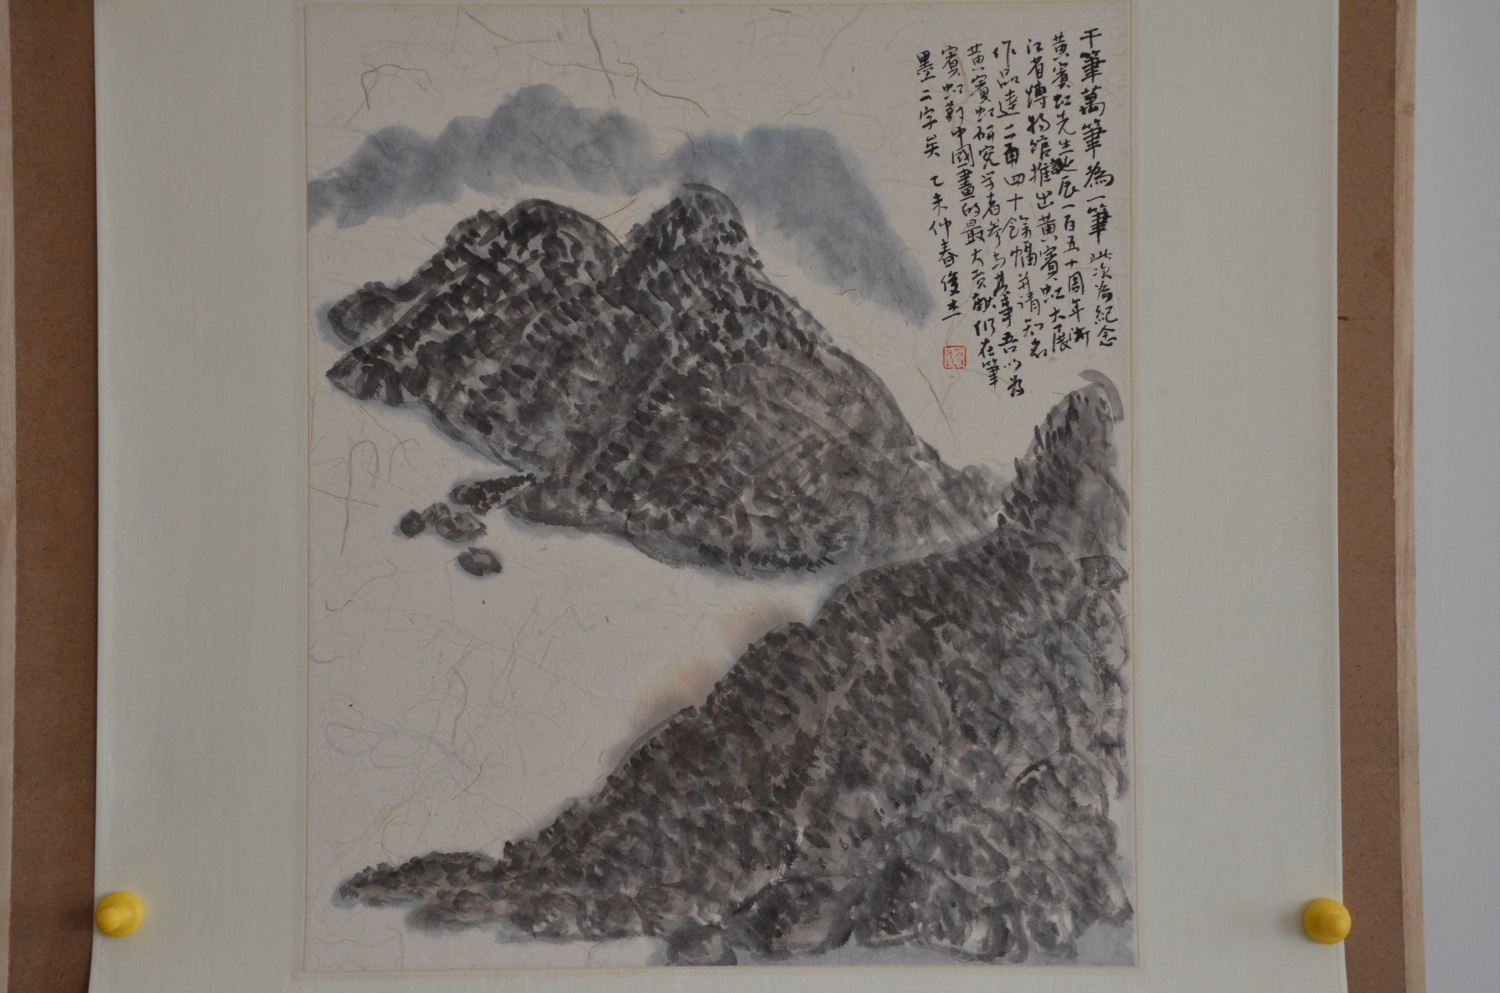 千筆萬筆為一筆 此次為紀念
黃賓虹先生誕辰一百五十周年浙
江省博物館推出黃賓虹大展
作品達二百四十餘幅并请知名
黃賓虹研究学者参与其事吾以為
賓虹對中國畫的最大贡献仍在筆
墨二字矣 乙未仲春俊杰